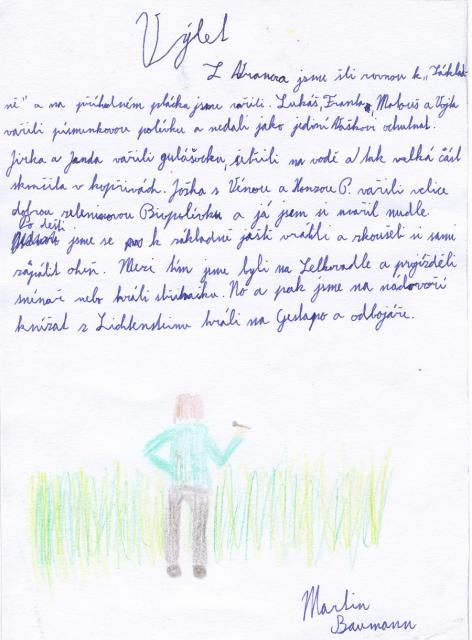 Výlet
Z Adranova jsme šli rovnou k „Základ
ně" a na příhodném plácku jsme vařili. Lukáš, Franta, Matouš a Vojta
vařili písmenkovou polévku a nedali jako jediní Vaškovi ochutnat.
Jirka a Janda vařili gulášovku, šetřili na vodě a tak velká část
skončila v kopřivách. Joška s Vénou a Honzou P. vařili velice
dobrou zeleninovou Biopolívku a já jsem si uvařil nudle.
Po dešti
jsme se k základně ještě vrátili a zkoušeli si sami
zapálit oheň. Mezi tím jsme byli na Lelkovadle a projížděli
nebo hráli No a pak jsme na nádvoří
knížat z Lichtensteinu hráli na Gestapo a odbojáře.
Martin
Baumann